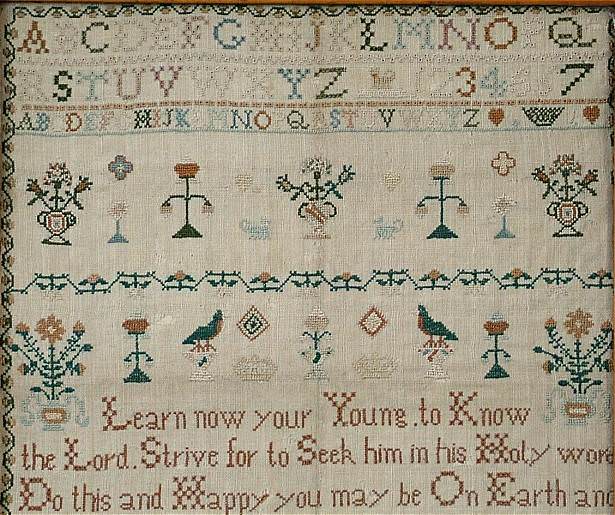 A B C D E F G H I J K L M N O P Q
R S T U V W X Y Z 1 2 3 4 5 6 7
AB C DEF G HIJK L MNO P Q RSTUVWXYZ
Learn now your Young.to Know
the Lord.Strive for to Seek him in his Holy word
Do this and Happy you may be On Earth and